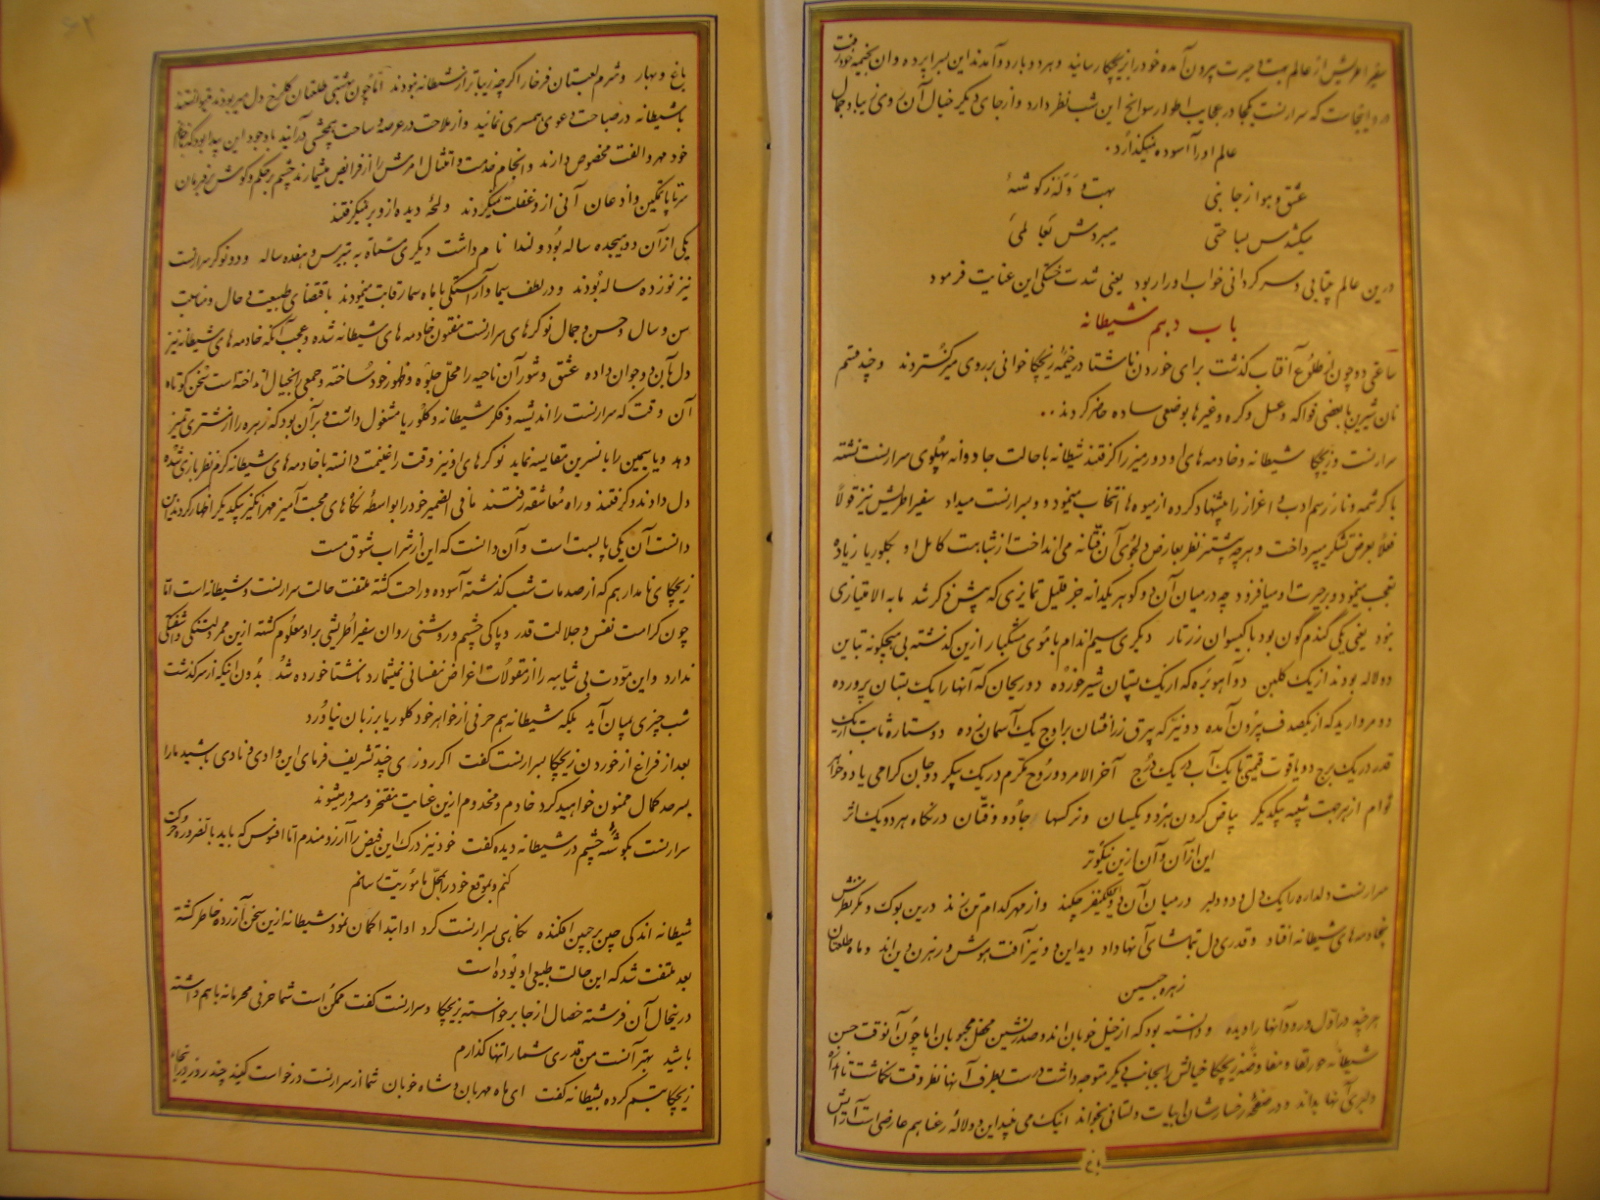 سفیر اطریش از عالم بهت و حیرت بیرون آمده خود را بزیچکا رسانید و هر دو بار دو آمدند این بسراپرده و آن بخیمه خود رفت
در اینجاست که سرارنست یکجا در عجایب اطوار سوانح این شب نظر دارد و از جای دیگر خیال آن وی زیبا و جمال
عالم او را آسوده نمیگذارد.
عشق و هوا از جانبی بهت و وله ز گوشهٔ
میکشدس بساحتی میبردش بعالمی
درین عالم بیتابی و سرگردانی خواب او را ربود یعنی شدت خستگی این عنایت فرمود
باب دهم شیطانه
ساعتی دو چون از طلوع آفتاب گذشت برای خوردن ناشتا در خیمه زیچکا خوانی بر روی میز گستردند و چند قسم
نان شیرین با بعضی فواکه و عسل و کره و غیرها بوضعی ساده حاضر کردند..
سرارنست و زیچکا شیطانه و خادمه های او دور میز را گرفتند شیطانه با حالت جادوانه بپهلوی سرارنست نشسته
با کرشمه و ناز رسم ادب و اعزاز را پیشنهاد کرده از میوه ها انتخاب مینمود و بسرارنست میداد سفیر اطریش نیز قولاً
فعلاً بعرض تشکر میپرداخت و هر چه بیشتر نظر بعارض دلجوی آن فتانه می انداخت از شباهت کامل او بکلوریا زیاده
تعجب مینمود و بر حیرت او میافزود چه در میان آن دو گوهر یکدانه جز قلیل تمایزی که پیش ذکر شد ما به الامتیازی
نبود یعنی یکی گندم گون بود با گیسوان زرتار دیگری سیم اندام با موی مشکبار ازین گذشته بی هیچگونه تباین
دو لاله بودند از یک گلبن دو آهو بره که از یک پستان شیر خورده دو ریحان که آنها را یک بستان پرورده
دو مروارید که از یکصدف بیرون آمده دو نیر که پرتو زرافشان بر اوج یک آسمان زده دو ستاره ثابت از یک
قدر در یک برج دو یاقوت قیمتی با یک آب در یک درج آخر الامر دو روح مکرم در یک پیکر دو جان گرامی یا دو خواهر
توام از هر جهت شبیه بیکدیگر بیاض گردن هر دو یکسان و نرگسها جادو و فتان در نگاه هر دو یک اثر
این از آن و آن ازین نیکوتر
سرارنست دلداده را یک دل و دو دلبر در میان آن دو بلاتکلیفی چکند و از مهر کدام تن زند درین بوک و مگر نظرش
بخادمه های شیطانه افتاد و قدری دل بتماشای آنها داد دید این دو نیز آفت هوش و رهزن دین اند و ماه طلعتان
زهره جبین
هر چند در اول ورود آنها را دیده و دانسته بود که از خیل خوبان اند و صدرنشین محفل محبوبان اما چون آنوقت حسن
شیطانه حور لقا و معاوضه زیچکا خیالش را بجانب دیگر متوجه داشت درست بطرف آنها نظر دقت نگماشت تا اندازه
دلبری آنها بداند و در صفحه رخسارشان ابیات دلستانی بخواند اینک می بیند این دو لاله رعنا هم عارضی است آرایش
باغ
باغ و بهار و شرم لعبتان فرخار اگر چه زیباتر از شیطانه نبودند اما چون بهشتی طلعتان گلرخ دل میربودند
با شیطانه در صباحت دعوی همسری نمانید و از ملاحت در عرصه و ساحت بچشمی در آیند با وجود این پیدا بود که بخانم
خود مهر و الفت مخصوص دارند و انجام خدمت و امتثال امرش را از فرایض میشمارند چشم بر حکم و گوش بر فرمان
سر تا پا تمکین و اذعان آنی ازو غفلت نمیکردند و لمحهٔ دیده ازو بر نمیگرفتند
یکی از آن دو هیجده ساله بود و لندا نام داشت دیگری مسماة به بتیرس و هفده ساله و دو نوکر سرارنست
نیز نوزده ساله بودند و در لطف سیما و آراستگی با ماه سما رقابت مینمودند باقتضای طبیعت و حال و مناسبت
سن و سال و حسن و جمال نوکرهای سرارنست مفتون خادمه های شیطانه شده و عجب آنکه خادمه های شیطانه نیز
دل بآن دو جوان داده عشق و شور آن ناحیه را محل جلوه و ظهور خود ساخته و جمعی را بخیال انداخته است سخن کوتاه
آن وقت که سرارنست را اندیشه و فکر شیطانه و کلوریا مشغول داشت و بر آن بود که زهره را از مشتری تمیز
دهد و یاسمین را با نسرین مقایسه نماید نوکرهای او نیز وقت را غنیمت دانسته با خادمه های شیطانه گرم نظر بازی شده
دل دادند و گرفتند و راه معاشقه رفتند ما فی الضمیر خود را بواسطه نگاه های محبت آمیز مهرانگیز بیکدیگر اظهار کردند این
دانست آن یکی پا بست است و آن دانست که این از شراب شوق مست
زیچکای نامدار هم که از صدمات شب گذشته آسوده و راحت گشته ملتفت حالت سرارنست و شیطانه است اما
چون کرامت نفس و جلالت قدر و پاکی چشم و روشنی روان سفیر اطریشی بر او معلوم گشته ازین ممر دلتنگی و آشفتگی
ندارد و این مودت بی شایبه را از مقولات اغراض نفسانی نمیشمارد ناشتا خورده شد بدون اینکه از سرگذشت
شب چیزی بمیان آید بلکه شیطانه هم حرفی از خواهر خود کلوریا بر زبان نیاورد
بعد از فراغ از خوردن زیچکا بسرارنست گفت اگر روزی چند تشریف فرمای این وادی و نادی باشید ما را
بسرحد کمال ممنون خواهید کرد خادم و مخدوم ازین عنایت مفتخر و مسرور میشوند
سرارنست بگوشهٔ چشم در شیطانه دیده گفت خود نیز درک این فیض را آرزومندم اما افسوس که باید بالضروره حرکت
کنم و بموقع خود را بمحل ماموریت رسانم
شیطانه اندکی چین بر جبین افکنده نگاهی بسرارنست کرد او ابتدا گمان نمود شیطانه ازین سخن آزرده خاطر گشته
بعد ملتفت شد که این حالت طبیعی او بوده است
درینحال آن فرشته خصال از جا برخواسته بزیچکا و سرارنست گفت ممکن است شما حرفی محرمانه با هم داشته
باشید بهتر آنست من قدری شما را تنها گذارم
زیچکا تبسم کرده بشیطانه گفت ای ماه مهربان و شاه خوبان شما از سرارنست درخواست کنید چند روز در اینجا